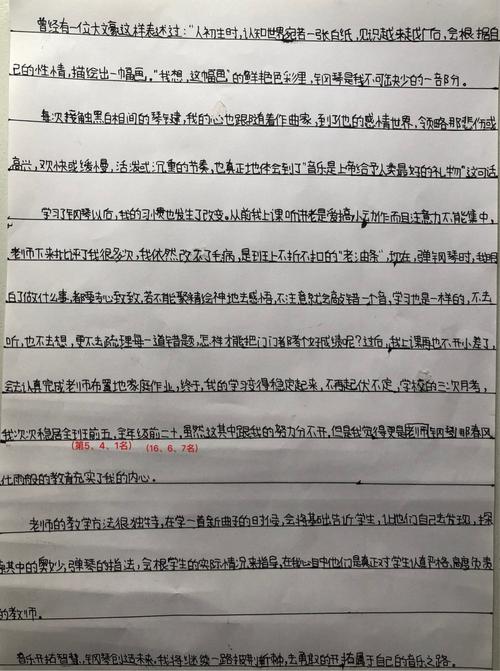 曾经有一位大文豪这样表述过：“人初生时，认知世界宛若一张白纸，见识越来越广后，会根据自
己的性情，描绘出一幅画。”我想，这幅画的鲜艳色彩里，钢琴是我不可缺少的一音部分。
每次接触黑白相间的琴键，我的心也跟随着作曲家，到了他的感情世界，领略那悲伤或
高兴，欢快或缓慢，活泼或沉重的节奏，也真正地体会到了“音乐是上帝给予人类最好的礼物”这句话
学习了钢琴以后，我的习惯也发生了改变。从前我上课听讲老是爱搞小动作而且注意力不能集中，
老师下来批评了我很多次，我依然改不了毛病，是班上不折不扣的“老油条”，现在，弹钢琴时，我明
白了做什么事，都要专心致致，若不能聚精会神地去感悟，不注意就会敲错一个音，学习也是一样的，不去
听，也不去想，更不去梳理每一道错题，怎样才能把门门都考个好成绩呢？过后，我上课再也不开小差了，
会去认真完成老师布置地家庭作业，终于，我的学习变得稳定起来，不再起伏不定，学校的三次月考，
我次次稳居全班前五，全年级前二十，虽然这其中跟我的努力分不开，但是我觉得更是老师钢琴那春风
（第5、4、1名） （16、6、7名）
化雨般的教育充实了我的内心。
老师的教学方法很独特，在学一首新曲子的时候，会将基础告诉学生，让他们自己去发现，探
索其中的奥妙，弹琴的指法，会根学生的实际情况来指导，在我心目中他们是真正对学生认真严格，高度负责
的教师。
音乐开拓智慧，钢琴创造未来，我将继续一路披荆斩棘，去勇敢的开拓属于自己的音乐之路。